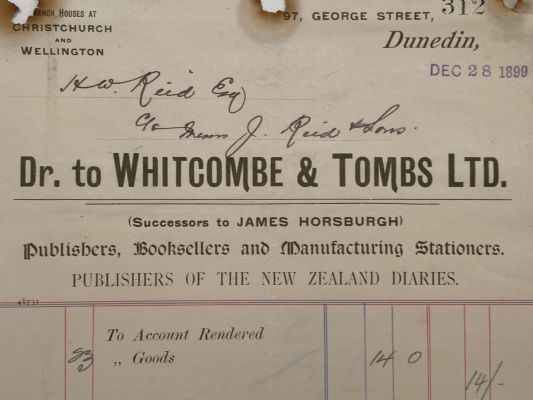 BRANCH HOUSES AT
CHRISTCHURCH
AND
WELLINGTON
97, GEORGE STREET,
312
Dunedin,
DEC 28 1899
H.W. Reid Esq
c/o Messrs J. Reid & Sons.
Dr. to WHITCOMBE & TOMBS LTD.
(Successors to JAMES HORSBURGH)
Publishers, Booksellers and Manufacturing Stationers.
PUBLISHERS OF THE NEW ZEALAND DIARIES.
48731
To Account Rendered
„ Goods 14 0
14/-